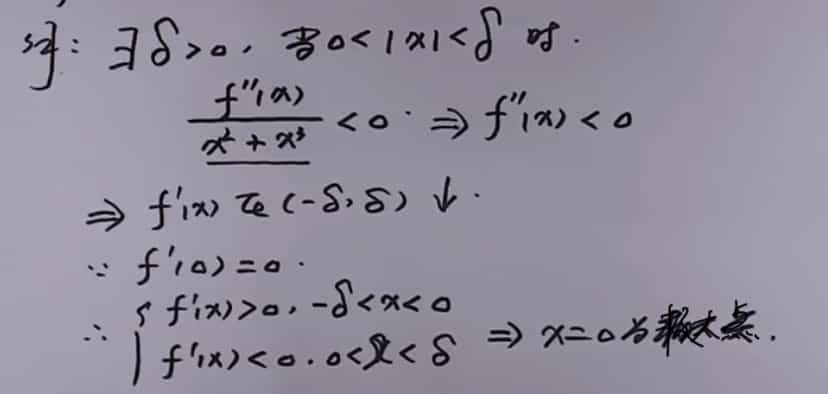 则: ∃δ>0, 当0<|x|<δ 时.
f''(x)/(x²+x³) <0. ⇒ f''(x)<0
⇒ f'(x) 在(-δ,δ) ↓.
∵ f'(0)=0.
∴ { f'(x)>0, -δ<x<0
f'(x)<0. 0<x<δ ⇒ x=0为极大点.